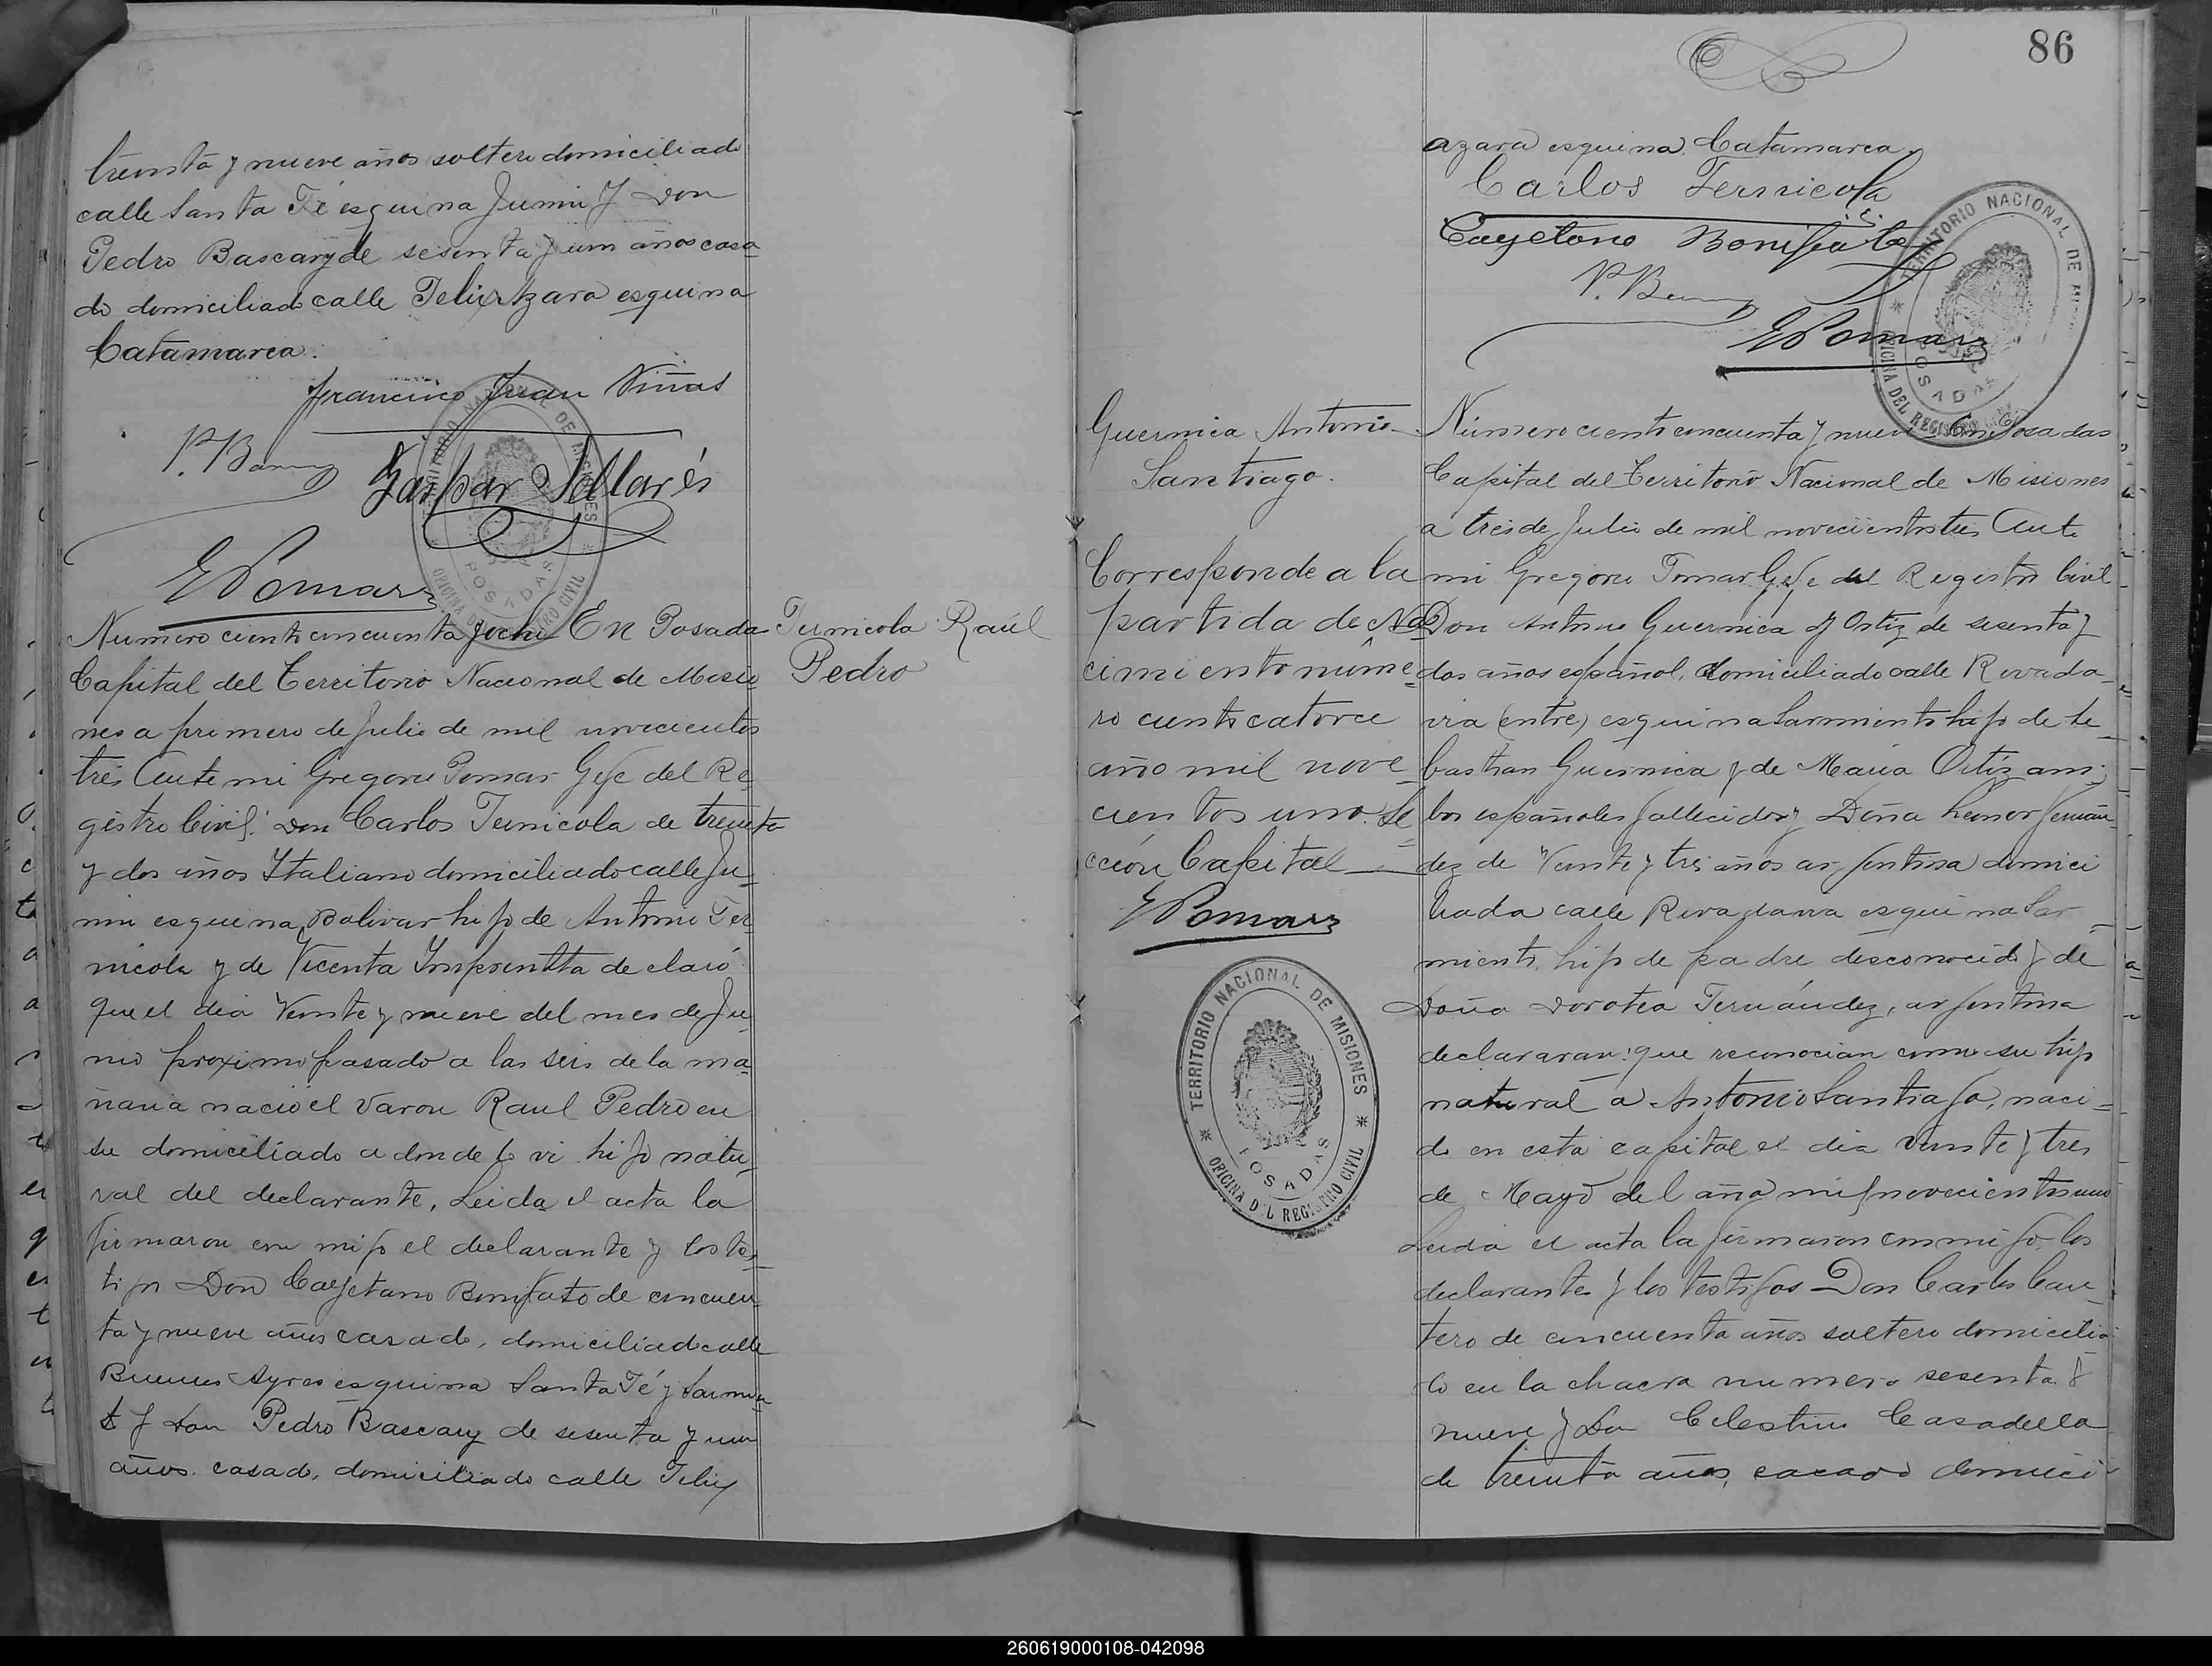 treinta y nueve años soltero domiciliado
calle Santa Fé esquina Junin y Don
Pedro Bascary de sesenta y un años casa
do domiciliado calle Felix Azara esquina
Catamarca.
Francisco Juan Viñas
P. Bascary
Gaspar Sollarés
G Pomar
TERRITORIO NACIONAL DE MISIONES
POSADAS
OFICINA DEL REGISTRO CIVIL
Numero ciento cincuenta y ocho En Posadas
Capital del Territorio Nacional de Misio
nes a primero de Julio de mil novecientos
tres Ante mi Gregorio Pomar Gefe del Re
gistro Civil: Don Carlos Ternicola de treinta
y dos años Italiano domiciliado calle Ju
nin esquina Bolivar hijo de Antonio Ter
nicola y de Vicenta declaró
que el dia Veinte y nueve del mes de Ju
nio proximo pasado a las seis de la ma
ñana nacio el varon Raul Pedro en
su domiciliado a donde lo vi hijo natu
ral del declarante. Leida el acta la
firmaron con migo el declarante y los tes
tigos Don Cayetano Bonifato de cincuen
ta y nueve años casado, domiciliado calle
Buenos Ayres esquina Santa Fé y Sarmien
to y Don Pedro Bascary de sesenta y un
años casado, domiciliado calle Felix
Ternicola Raúl
Pedro
86
azara esquina Catamarca.
Carlos Ternicola
Cayetano Bonifato
P. Bascary
G Pomar
TERRITORIO NACIONAL DE MISIONES
POSADAS
OFICINA DEL REGISTRO CIVIL
Guernica Antonio
Santiago.
Corresponde a la
partida de Na
cimiento núme
ro ciento catorce
año mil nove
cientos uno. Se
cción Capital
G Pomar
TERRITORIO NACIONAL DE MISIONES
POSADAS
OFICINA DEL REGISTRO CIVIL
Número ciento cincuenta y nueve En Posadas
Capital del Territorio Nacional de Misiones
a tres de Julio de mil novecientos tres Ante
mi Gregorio Pomar Gefe del Registro Civil
Don Antonio Guernica y Ortiz de sesenta y
dos años español, domiciliado calle Rivada
via (entre) esquina Sarmiento hijo de Se
bastian Guernica y de Maria Ortiz am
bos españoles fallecidos y Doña Leonor Fernán
dez de Veinte y tres años argentina domici
liada calle Rivadavia esquina Sar
miento, hijo de padre desconocido y de
Doña Dorotea Fernández, argentina
declararan: que reconocian como su hijo
natural a Antonio Santiago, naci
do en esta capital el dia veinte y tres
de Mayo del año mil novecientos uno
Leida el acta la firmaron conmigo, los
declarantes y los testigos Don Carlos Can
tero de cincuenta años soltero domicilia
do en la chacra numero sesenta y
nueve y Don Celestino Casadella
de treinta años, casado domici
260619000108-042098